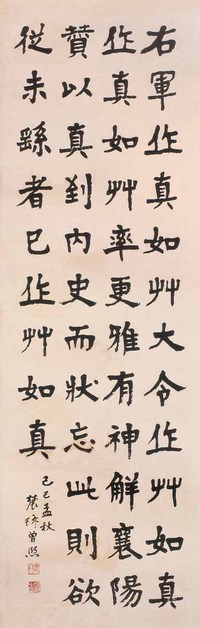 右軍作真如艸大令作艸如真
作真如艸率更雅有神解襄陽
贊以真到內史而狀忘此則欲
從未繇者已作艸如真
己巳孟秋
農髯曾熙